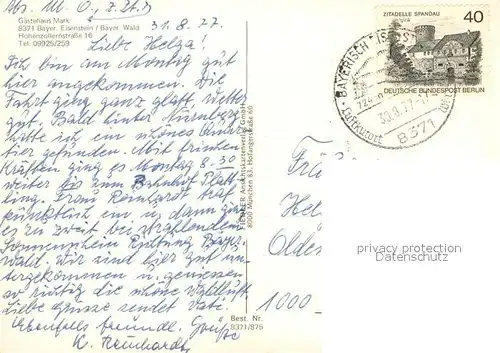 Abs. M. O., z. Zt.
Gästehaus Mark
8371 Bayer. Eisenstein / Bayer. Wald
Hohenzollernstraße 16
Tel. 09925/259
31.8.77
Liebe Helga!
Ich bin am Montag gut
hier angekommen. Die
Fahrt ging ganz glatt, Wetter
gut. Bald hinter Nürnberg
hatte ich ein schönes Quar-
tier gefunden. Mit frischen
Kräften ging es Montag 8.30
weiter bis zum Bahnhof Platt-
ling. Frau Reinhardt traf
pünktlich ein u. dann ging
es zu zweit bei strahlendem
Sonnenschein Richtung Bayr.
wald. Wir sind hier gut un-
tergekommen u. geniessen
so richtig die schöne Waldluft.
Liebe Grüsse sendet Vati.
Ebenfalls freundl. Grüße
K. Reinhardt
FIEDLER Ansichtskartenverlag GmbH
8000 München 83, Hofangerstraße 60
Best. Nr.
8371/875
ZITADELLE SPANDAU
40
DEUTSCHE BUNDESPOST BERLIN
BAYERISCH EISENST
Luftkurort
30.8.77-17
8371
Hel
Olden
1000
privacy protection